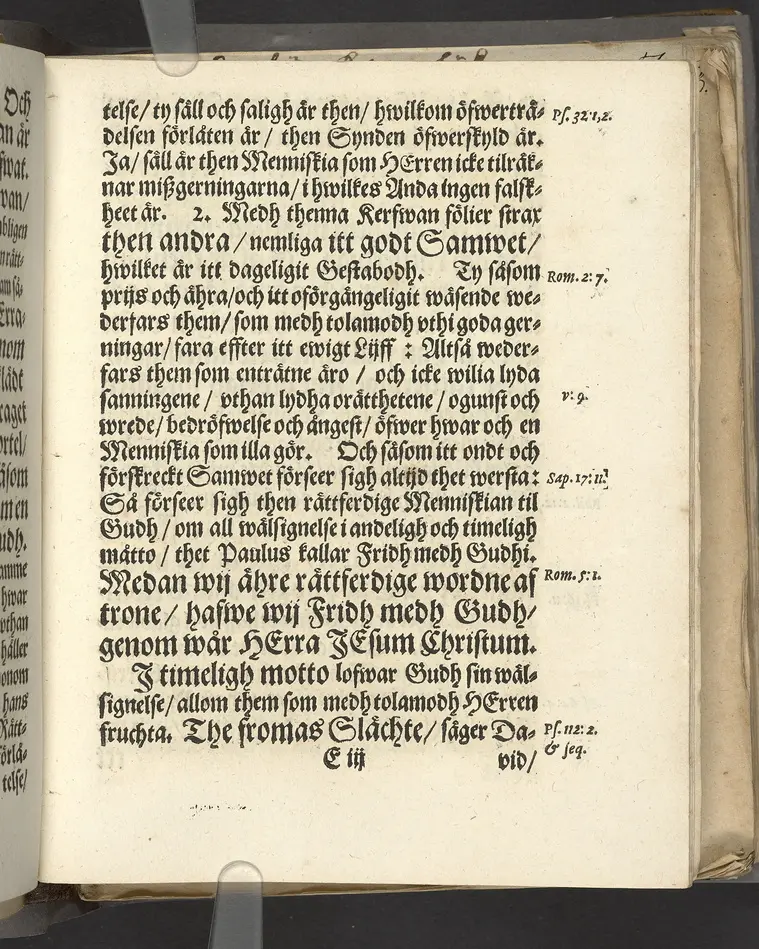 telse/ ty säll och saligh är then/ hwilkom öfwerträ-
Ps. 32:1,2.
delsen förlåten är/ then Synden öfwerskyld är.
Ja/ säll är then Menniskia som HErren icke tilräk-
nar mißgerningarna/ i hwilkes Anda ingen falsk-
heet är. 2. Medh thenna Kerfwan fölier strax
then andra/ nemliga itt godt Samwet/
hwilket är itt dageligit Gestabodh. Ty såsom
Rom. 2:7.
prijs och ähra/och itt oförgängeligit wäsende we-
derfars them/ som medh tolamodh vthi goda ger-
ningar/ fara effter itt ewigt Lijff : Altså weder-
fars them som enträtne äro / och icke wilia lyda
sanningene/ vthan lydha orätthetene/ ogunst och
v: 9.
wrede/ bedröfwelse och ångest/ öfwer hwar och en
Menniskia som illa gör. Och såsom itt ondt och
förskreckt Samwet förseer sigh altijd thet wersta:
Sap. 17:11.
Så förseer sigh then rättferdige Menniskian til
Gudh/ om all wälsignelse i andeligh och timeligh
måtto/ thet Paulus kallar Fridh medh Gudhi.
Medan wij ähre rättferdige wordne af
Rom. 5:1.
trone/ hafwe wij Fridh medh Gudh/
genom wår HErra JEsum Christum.
J timeligh motto lofwar Gudh sin wäl-
signelse/ allom them som medh tolamodh HErren
fruchta. The fromas Slächte/ säger Da-
Ps. 112:2.
& seq.
E iij
vid/
Och